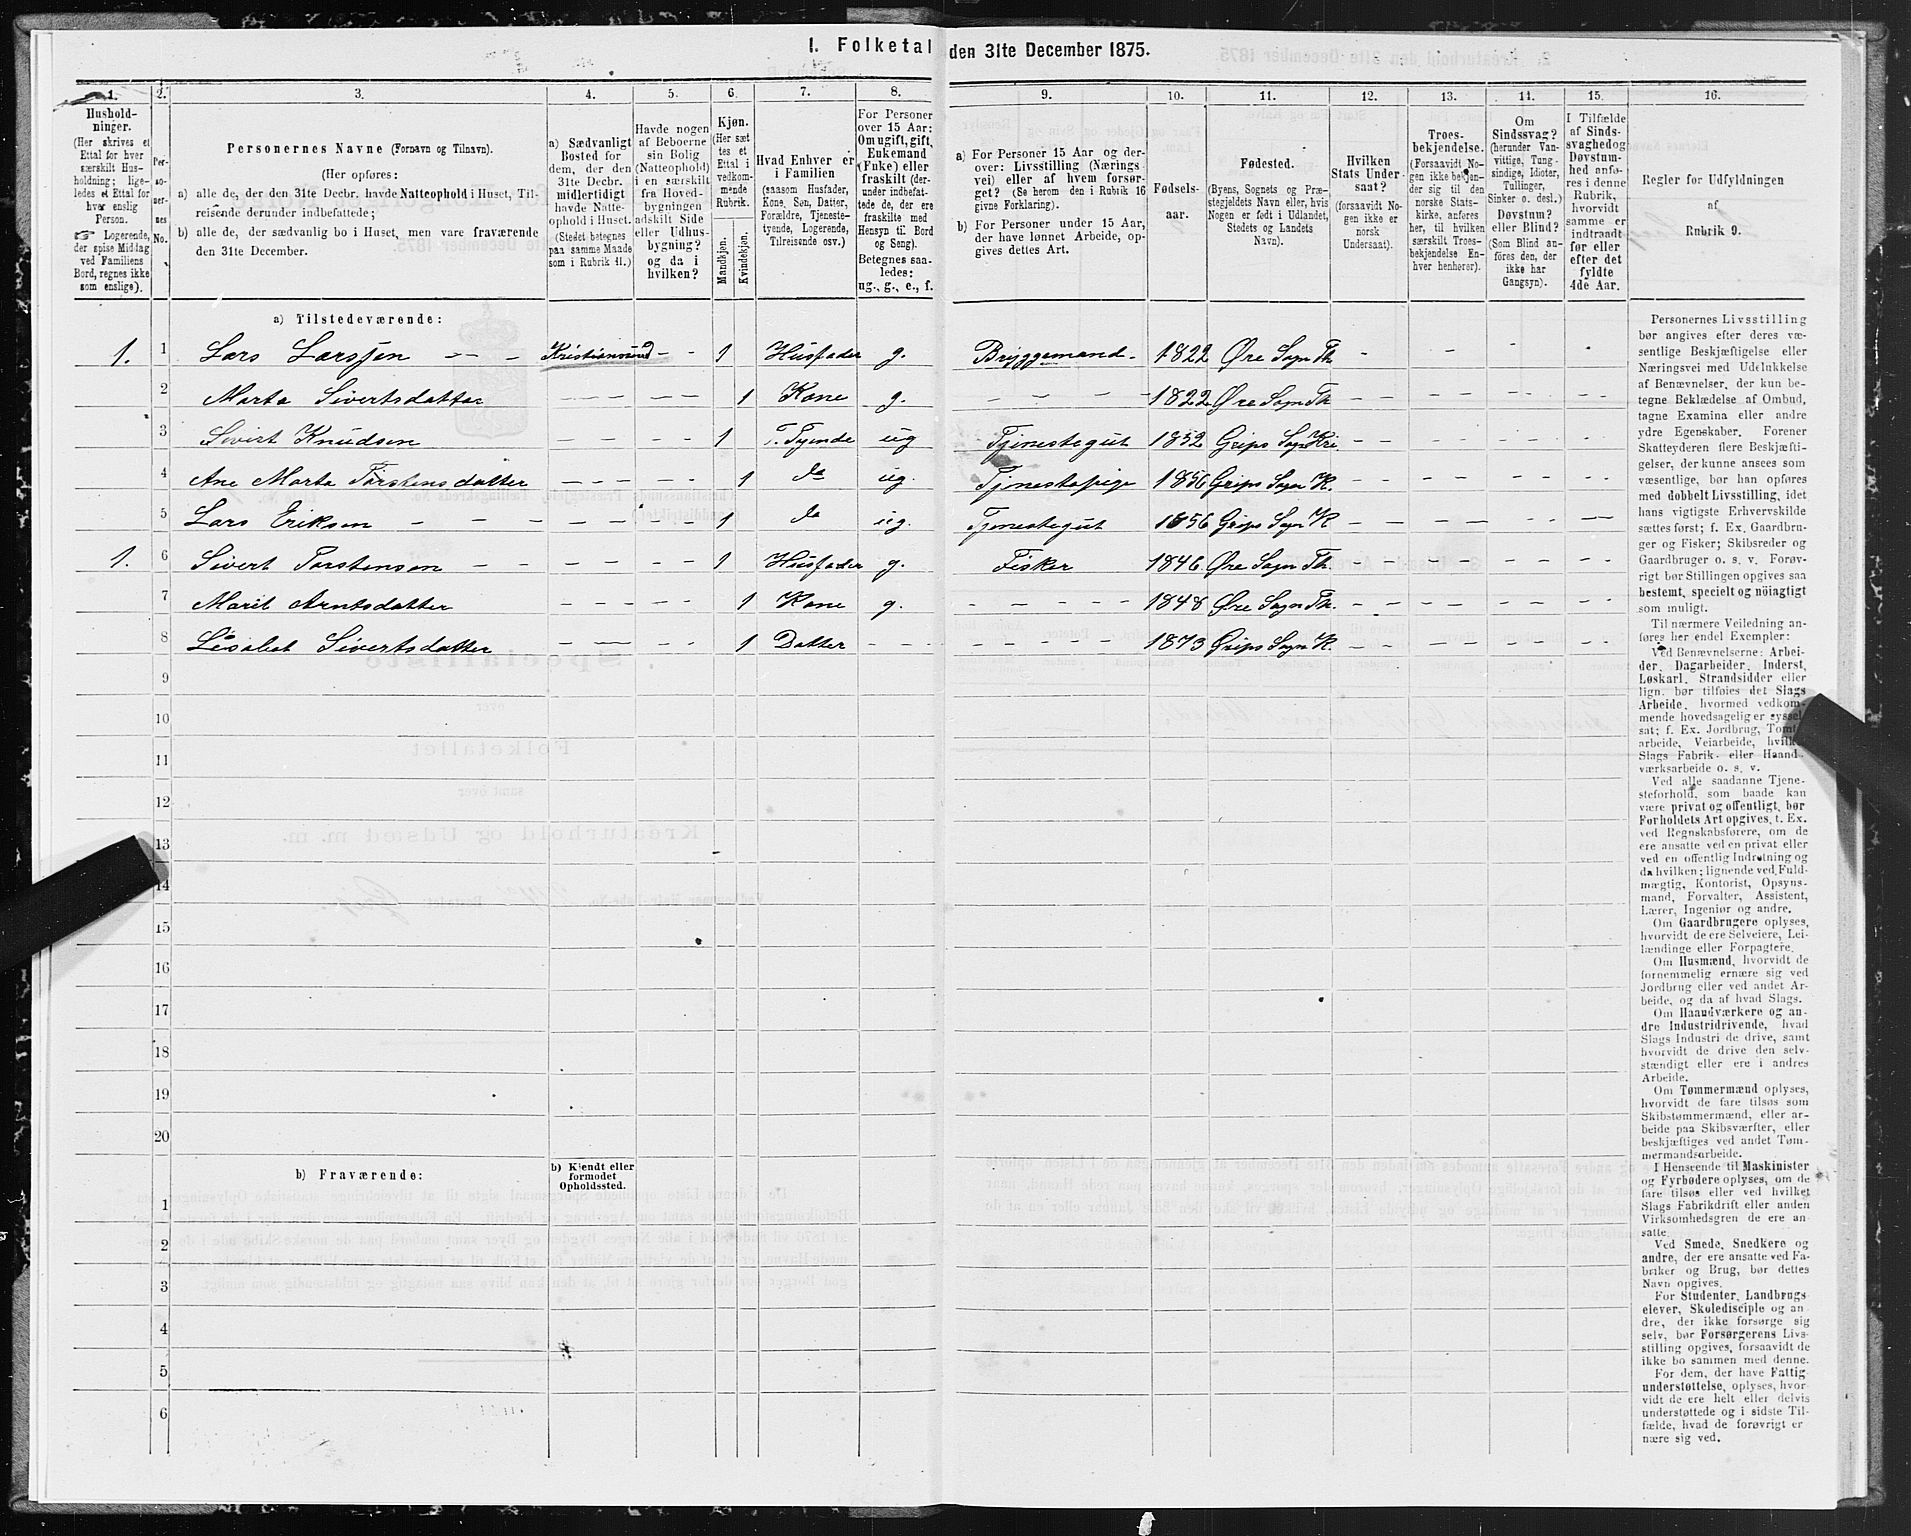 I. Folketal den 31te December 1875.
1. 2. 3. 4. 5. 6. 7. 8. 9. 10. 11. 12. 13. 14. 15. 16.
Hushold-
ninger.
(Her skrives et
Ettal for hver
særskilt Hus-
holdning; lige-
ledes et Ettal for
hver enslig
Person.
Logerende,
der spise Middag
ved Familiens
Bord, regnes ikke
som enslige).
Per-
so-
ner-
nes
No.
Personernes Navne (Fornavn og Tilnavn).
(Her opføres:
a) alle de, der den 31te Decbr. havde Natteophold i Huset, Til-
reisende derunder indbefattede;
b) alle de, der sædvanlig bo i Huset, men vare fraværende
den 31te December.
a) Sædvanligt
Bosted for
dem, der den
31te Decbr.
midlertidigt
havde Natte-
ophold i Huset.
(Stedet betegnes
paa samme Maade
som i Rubrik 11.)
Havde nogen
af Beboerne
sin Bolig
(Natteophold)
i en særskilt
fra Hoved-
bygningen
adskilt Side
eller Udhus-
bygning?
og da i
hvilken?
Kjøn.
(Her sæt-
tes et
Ettal i
vedkom-
mende
Rubrik.
Mandkjøn.
Kvindekjøn.
Hvad Enhver er
i Familien
(saasom Husfader,
Kone, Søn, Datter,
Forældre, Tjeneste-
tyende, Logerende,
Tilreisende osv.)
For Personer
over 15 Aar:
Om ugift, gift,
Enkemand
(Enke) eller
fraskilt (der-
under indbefat-
tede de, der ere
fraskilte med
Hensyn til Bord
og Seng).
Betegnes saa-
ledes:
ug., g., e., f.
a) For Personer 15 Aar og der-
over: Livsstilling (Nærings-
vei) eller af hvem forsør-
get? (Se herom den i Rubrik 16
givne Forklaring).
b) For Personer under 15 Aar,
der have lønnet Arbeide, op-
gives dettes Art.
Fødsels-
aar.
Fødested.
(Byens, Sognets og Præ-
stegjeldets Navn eller, hvis
Nogen er født i Udlandet,
Stedets og Landets
Navn).
Hvilken
Stats Under-
saat?
(forsaavidt No-
gen ikke er
norsk
Undersaat).
Troes-
bekjendelse.
(Forsaavidt No-
gen ikke bekjen-
der sig til den
norske Stats-
kirke, anføres
her, til hvilken
særskilt Troes-
bekjendelse En-
hver henhører).
Om
Sindssvag?
(herunder Van-
vittige, Tung-
sindige, Idioter,
Tullinger,
Sinker o. desl.)
Døvstum?
eller Blind?
(Som Blind an-
føres den, der
ikke har
Gangsyn).
I Tilfælde
af Sinds-
svaghed og
Døvstum-
hed anfø-
res i denne
Rubrik,
hvorvidt
samme er
indtraadt
før eller
efter det
fyldte
4de Aar.
Regler for Udfyldningen
af
Rubrik 9.
a) Tilstedeværende:
1. 1 Lars Larssen – – – Kristianssund – – 1 Husfader g. Bryggemand 1822 Øre Sogn Th. – – – –
2 Marta Sivertsdatter – – – – 1 Kone g. – – – 1822 Øre Sogn Th. – – – –
3 Sivert Knudsen – – – – 1 T. Tyende ug Tjenestegut 1852 Grips Sogn Kri. – – – –
4 Ane Marta Torstensdatter – – – – 1 do ug. Tjenestepige 1856 Grips Sogn K. – – – –
5 Lars Eriksen – – – – 1 do ug. Tjenestegut 1856 Grips Sogn K – – – –
1. 6 Sivert Torstensen – – – – 1 Husfader g. Fisker 1846 Øre Sogn Th. – – – –
7 Marit Arntsdatter – – – – 1 Kone g. – – – 1848 Øre Sogn Th. – – – –
8 Lisabet Sivertsdatter – – – 1 Datter – – – – 1873 Grips Sogn K. – – – –
9
10
11
12
13
14
15
16
17
18
19
20
b) Fraværende:
b) Kjendt eller
formodet
Opholdssted.
1
2
3
4
5
6
Personernes Livsstilling
bør angives efter deres væ-
sentlige Beskjæftigelse eller
Næringsvei med Udelukkelse
af Benævnelser, der kun be-
tegne Beklædelse af Ombud,
tagne Examina eller andre
ydre Egenskaber. Forener
Skatteyderen flere Beskjæfti-
gelser, der kunne ansees som
væsentlige, bør han opføres
med dobbelt Livsstilling, idet
hans vigtigste Erhvervskilde
sættes først; f. Ex. Gaardbru-
ger og Fisker; Skibsreder og
Gaardbruger o. s. v. Forøv-
rigt bør Stillingen opgives saa
bestemt, specielt og nöiagtigt
som muligt.
Til nærmere Veiledning an-
føres her endel Exempler:
Ved Benævnelserne: Arbei-
der, Dagarbeider, Inderst,
Løskarl, Strandsidder eller
lign. bør tilføies det Slags
Arbeide, hvormed vedkom-
mende hovedsagelig er syssel-
sat; f. Ex. Jordbrug, Tomte-
arbeide, Veiarbeide, hvilket
Slags Fabrik- eller Haand-
værksarbeide o. s. v.
Ved alle saadanne Tjene-
steforhold, som baade kan
være privat og offentligt, bør
Forholdets Art opgives, t. Ex.
ved Regnskabsførere, om de
ere ansatte ved en privat eller
ved en offentlig Indretning og
da hvilken; lignende ved Fuld-
mægtig, Kontorist, Opsyns-
mand, Forvalter, Assistent,
Lærer, Ingeniør og andre.
Om Gaardbrugere oplyses,
hvorvidt de ere Selveiere, Lei-
lændinge eller Forpagtere.
Om Husmænd, hvorvidt de
fornemmelig ernære sig ved
Jordbrug eller ved andet Ar-
beide, og da af hvad Slags.
Om Haandværkere og an-
dre Industridrivende, hvad
Slags Industri de drive, samt
hvorvidt de drive den selv-
stændigt eller ere i andres
Arbeide.
Om Tømmermænd oplyses,
hvorvidt de fare tilsøs som
Skibstømmermænd, eller ar-
beide paa Skibsværfter, eller
beskjæftiges ved andet Tøm-
mermandsarbeide.
I Henseende til Maskinister
og Fyrbødere oplyses, om de
fare tilsøs eller ved hvilket
Slags Fabrikdrift eller anden
Virksomhedsgren de ere an-
satte.
Ved Smede, Snedkere og
andre, der ere ansatte ved Fa-
briker og Brug, bør dettes
Navn opgives.
For Studenter, Landbrugs-
elever, Skoledisciple og an-
dre, der ikke forsørge sig
selv, bør Forsørgerens Livs-
stilling opgives, forsaavidt de
ikke bo sammen med denne.
For dem, der have Fattig-
understøttelse, oplyses, hvor-
vidt de ere helt eller delvis
understøttede og i sidste Til-
fælde, hvad de forøvrigt er-
nære sig ved.